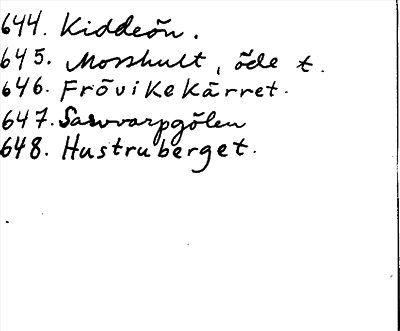 644. Kiddeön.
645. Mosshult, öde t.
646. Frövikekärret.
647. Sawvarpgölen
648. Hustruberget.